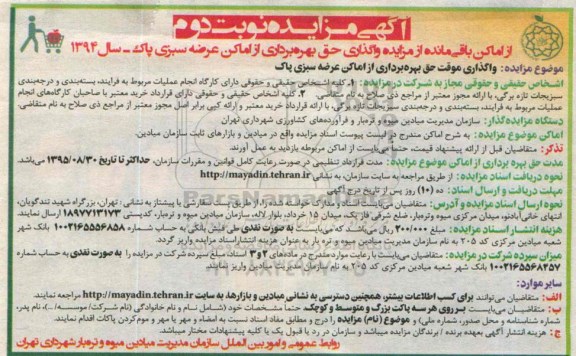 آگهی مزایده نوبت دوم
از اماکن باقی‌مانده از مزایده واگذاری حق بهره‌برداری از اماکن عرضه سبزی پاک - سال ۱۳۹۴
موضوع مزایده: واگذاری موقت حق بهره‌برداری از اماکن عرضه سبزی پاک
اشخاص حقیقی و حقوقی مجاز به شرکت در مزایده: ۱. کلیه اشخاص حقیقی و حقوقی دارای کارگاه انجام عملیات مربوط به فرایند، بسته‌بندی و درجه‌بندی
سبزیجات تازه برگی، با ارائه مجوز معتبر از مراجع ذی صلاح به نام متقاضی. ۲. کلیه اشخاص حقیقی و حقوقی دارای قرارداد خرید معتبر با صاحبان کارگاه‌های انجام
عملیات مربوط به فرایند، بسته‌بندی و درجه‌بندی سبزیجات تازه برگی، با ارائه قرارداد خرید معتبر و ارائه کپی برابر اصل مجوز معتبر از مراجع ذی صلاح به نام متقاضی.
دستگاه مزایده‌گذار: سازمان مدیریت میادین میوه و تره‌بار و فرآورده‌های کشاورزی شهرداری تهران
اماکن موضوع مزایده: به شرح اماکن مندرج در لیست پیوست اسناد مزایده واقع در میادین و بازارهای ثابت سازمان میادین.
تذکر: متقاضیان قبل از ارائه پیشنهاد قیمت، حتماً می‌بایست از اماکن مربوطه بازدید به عمل آورند.
مدت حق بهره برداری از اماکن موضوع مزایده: مدت قرارداد تنظیمی در صورت رعایت کامل قوانین و مقررات سازمان، حداکثر تا تاریخ ۱۳۹۵/۰۸/۳۰ می‌باشد.
نحوه دریافت اسناد مزایده: از طریق مراجعه به سایت سازمان، به نشانی http://mayadin.tehran.ir
مهلت دریافت و ارسال اسناد: ده (۱۰) روز پس از تاریخ درج آگهی
نحوه ارسال اسناد مزایده و آدرس: متقاضیان می‌بایست اسناد و مدارک خواسته شده را، از طریق پست سفارشی یا پیشتاز به نشانی: تهران، بزرگراه شهید تندگویان،
انتهای خانی‌آبادنو، میدان مرکزی میوه وتره‌بار، ضلع شرقی فاز یک، میدان ۱۵ خرداد، بلوار لاله، سازمان میادین میوه و تره‌بار، کدپستی ۱۸۹۷۷۱۳۱۷۳ ارسال نمایند.
هزینه انتشار اسناد مزایده: مبلغ ۲۰۰/۰۰۰ ریال می‌باشد، که می‌بایست به صورت نقدی طی فیش بانکی به حساب شماره ۱۰۰۲۱۶۵۵۵۶۸۵۸ بانک شهر
شعبه میادین مرکزی کد ۲۰۵ به نام سازمان مدیریت میادین میوه و تره بار به عنوان هزینه انتشاراسناد مزایده واریز گردد.
میزان سپرده شرکت در مزایده: متقاضیان می‌بایست با رعایت موارد مطروحه در ماده‌های ۲ و ۳ اسناد، مبلغ سپرده شرکت در مزایده را به صورت نقدی به حساب شماره
۱۰۰۲۱۶۵۵۶۸۲۵۷ بانک شهر شعبه میادین مرکزی کد ۲۰۵ به نام سازمان مدیریت میادین واریز نمایند.
سایر موارد:
الف: متقاضیان می‌توانند برای کسب اطلاعات بیشتر، همچنین دسترسی به نشانی میادین و بازارها، به سایت http://mayadin.tehran.ir مراجعه نمایند.
ب: متقاضیان می‌بایست بر روی هر سه پاکت بزرگ و متوسط و کوچک، حتماً مشخصات خود (شامل: نام و نام خانوادگی (نام شرکت/ موسسه/...)، نام پدر،
شماره شناسنامه و محل صدور، شماره ملی) و موضوع (نام) مزایده را درج و مطابق مفاد اسناد نسبت به امضاء و مهر یا مهر و موم کردن پاکات اقدام نمایند.
ج: هزینه انتشار آگهی بعهده برنده / برندگان مزایده میباشد و سازمان در رد یا قبول یک یا کلیه پیشنهادات مختار میباشد.
روابط عمومی و امور بین الملل سازمان مدیریت میادین میوه و تره‌بار شهرداری تهران